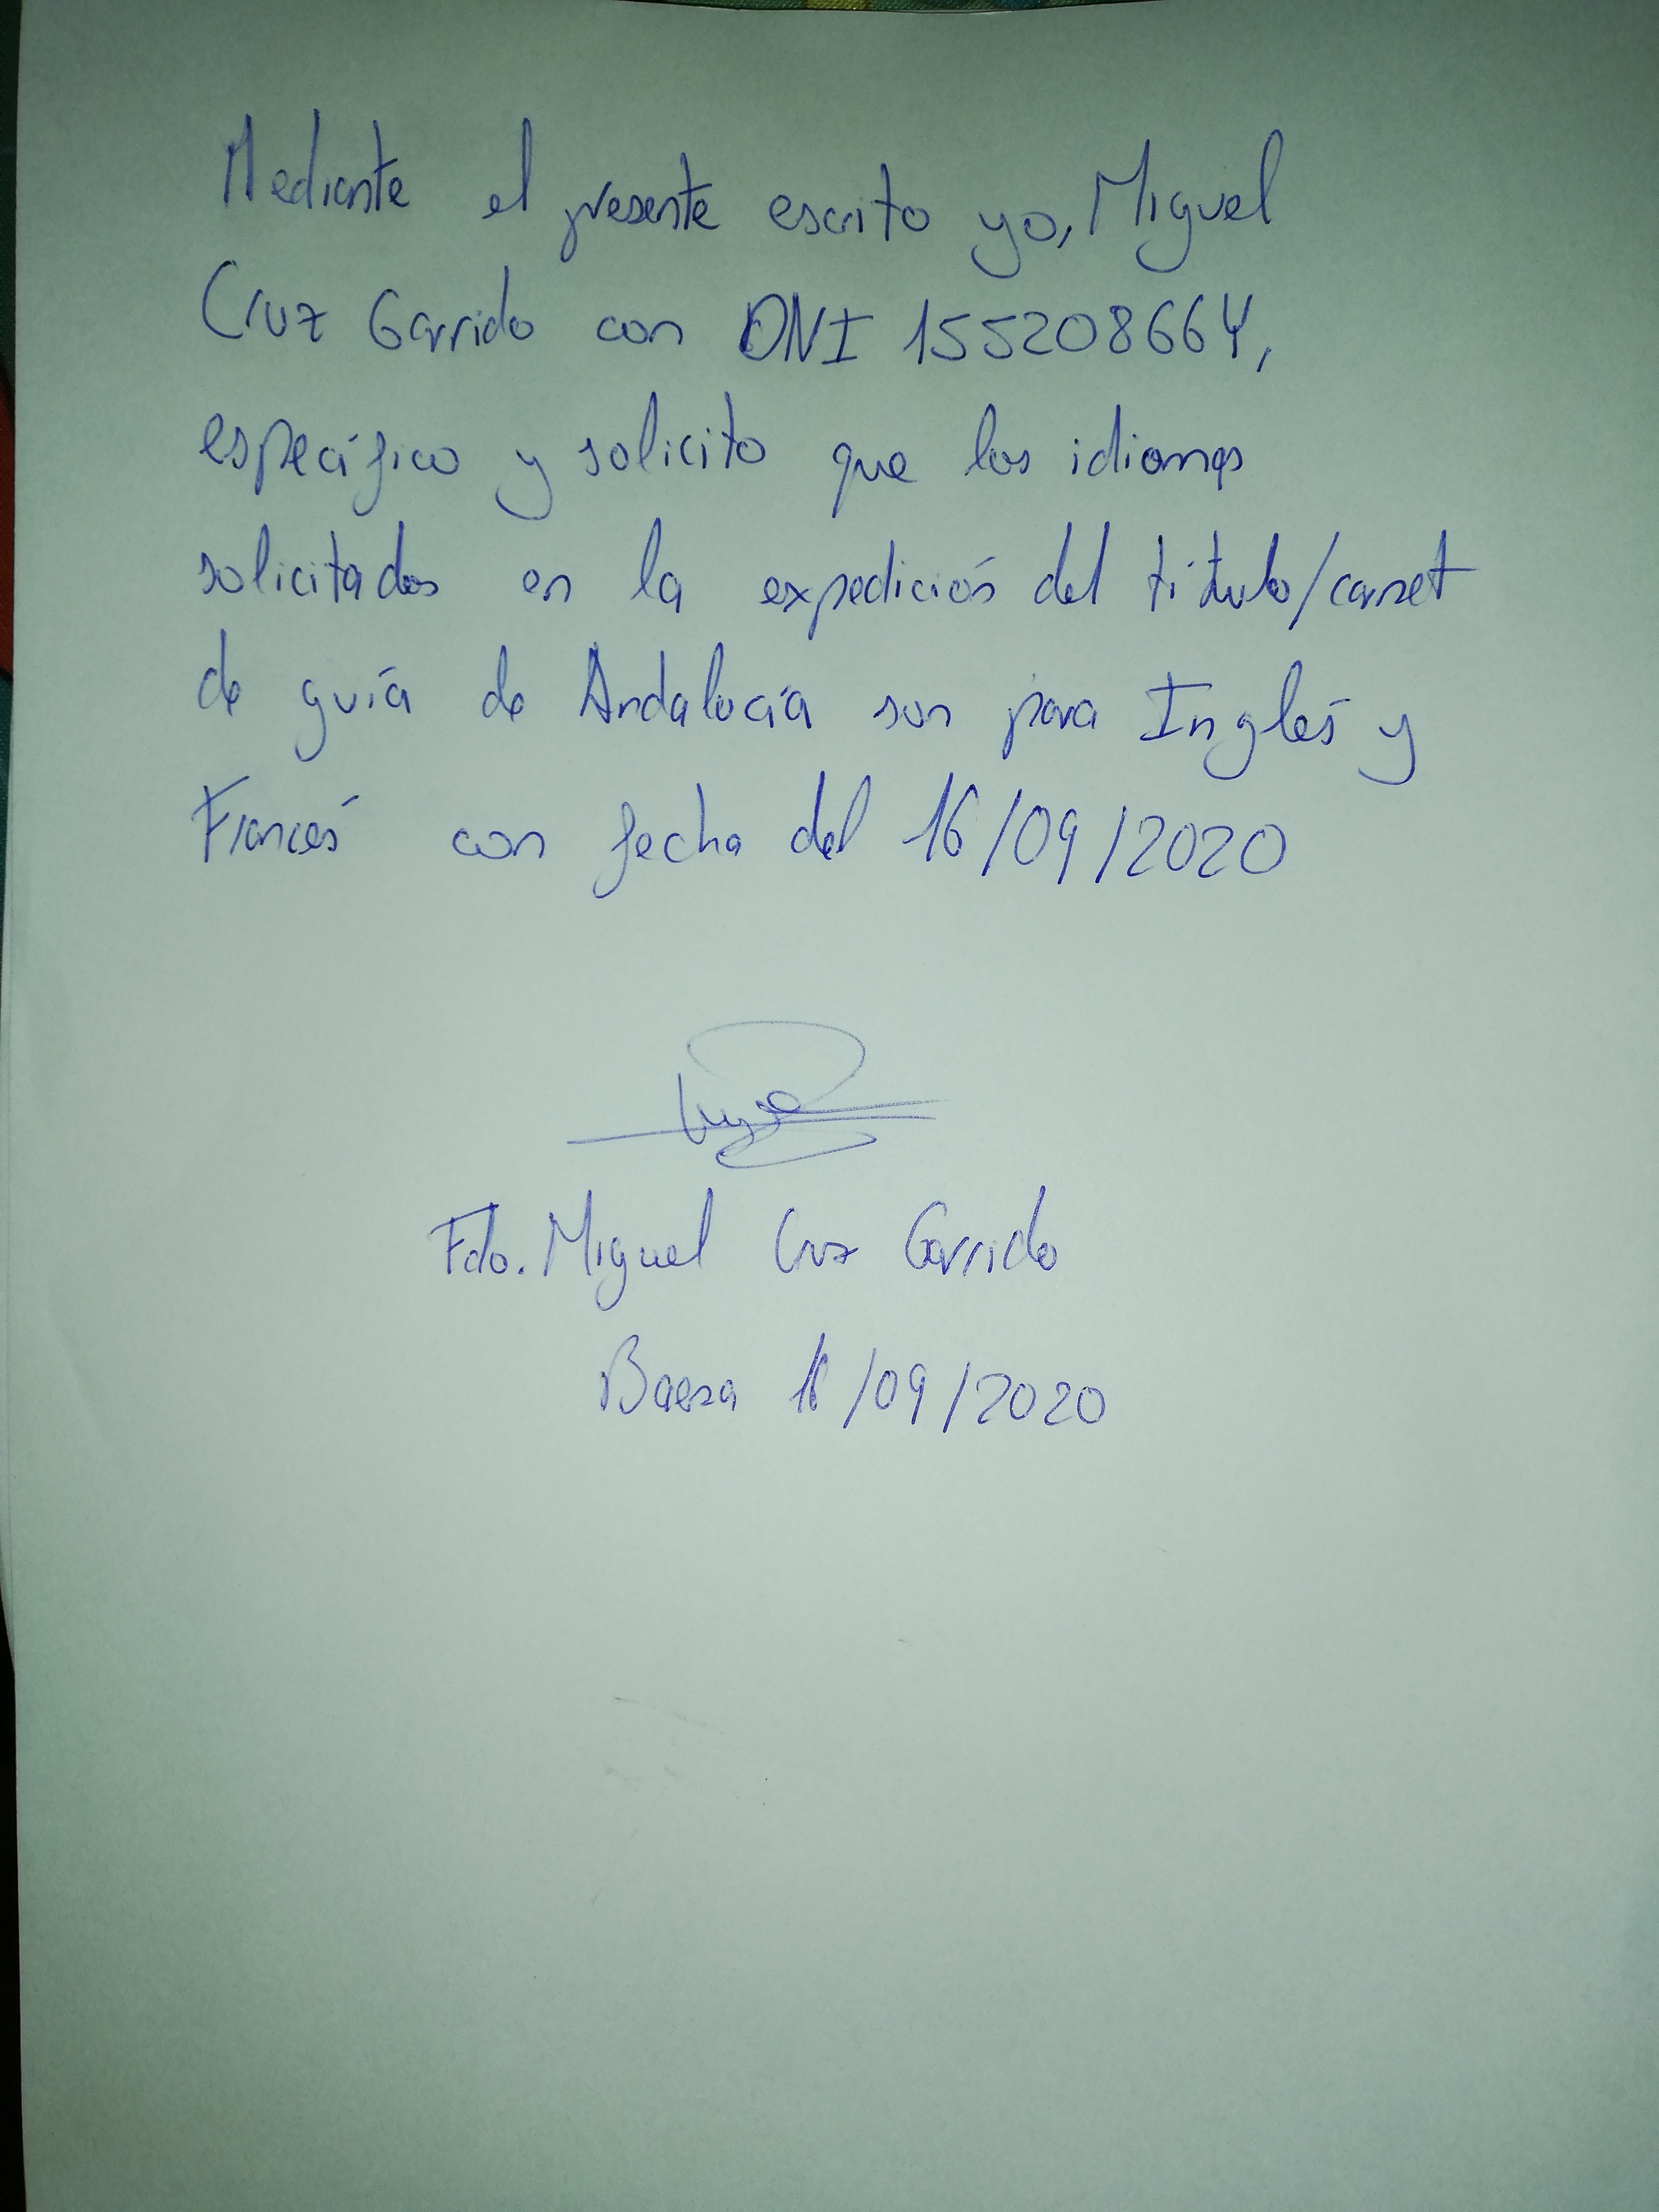 Mediante el presente escrito yo, Miguel
Cruz Garrido con DNI 15520866Y,
específico y solicito que los idiomas
solicitados en la expedición del título/carnet
de guía de Andalucía son para Inglés y
Francés con fecha del 16/09/2020
Fdo. Miguel Cruz Garrido
Baeza 16/09/2020